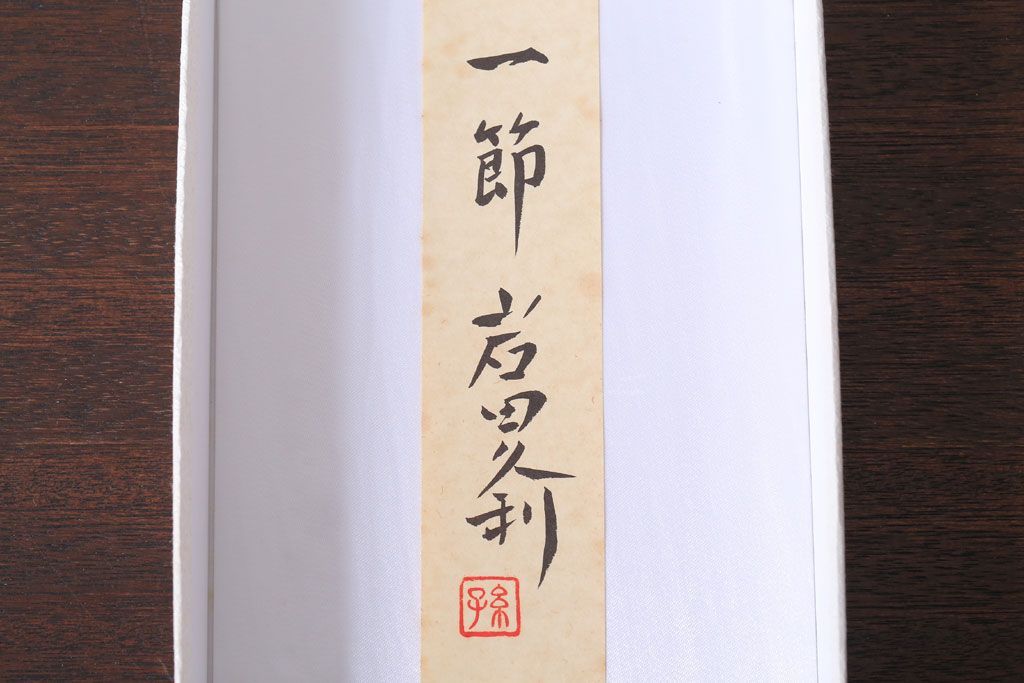 一節 岩田久利
孫